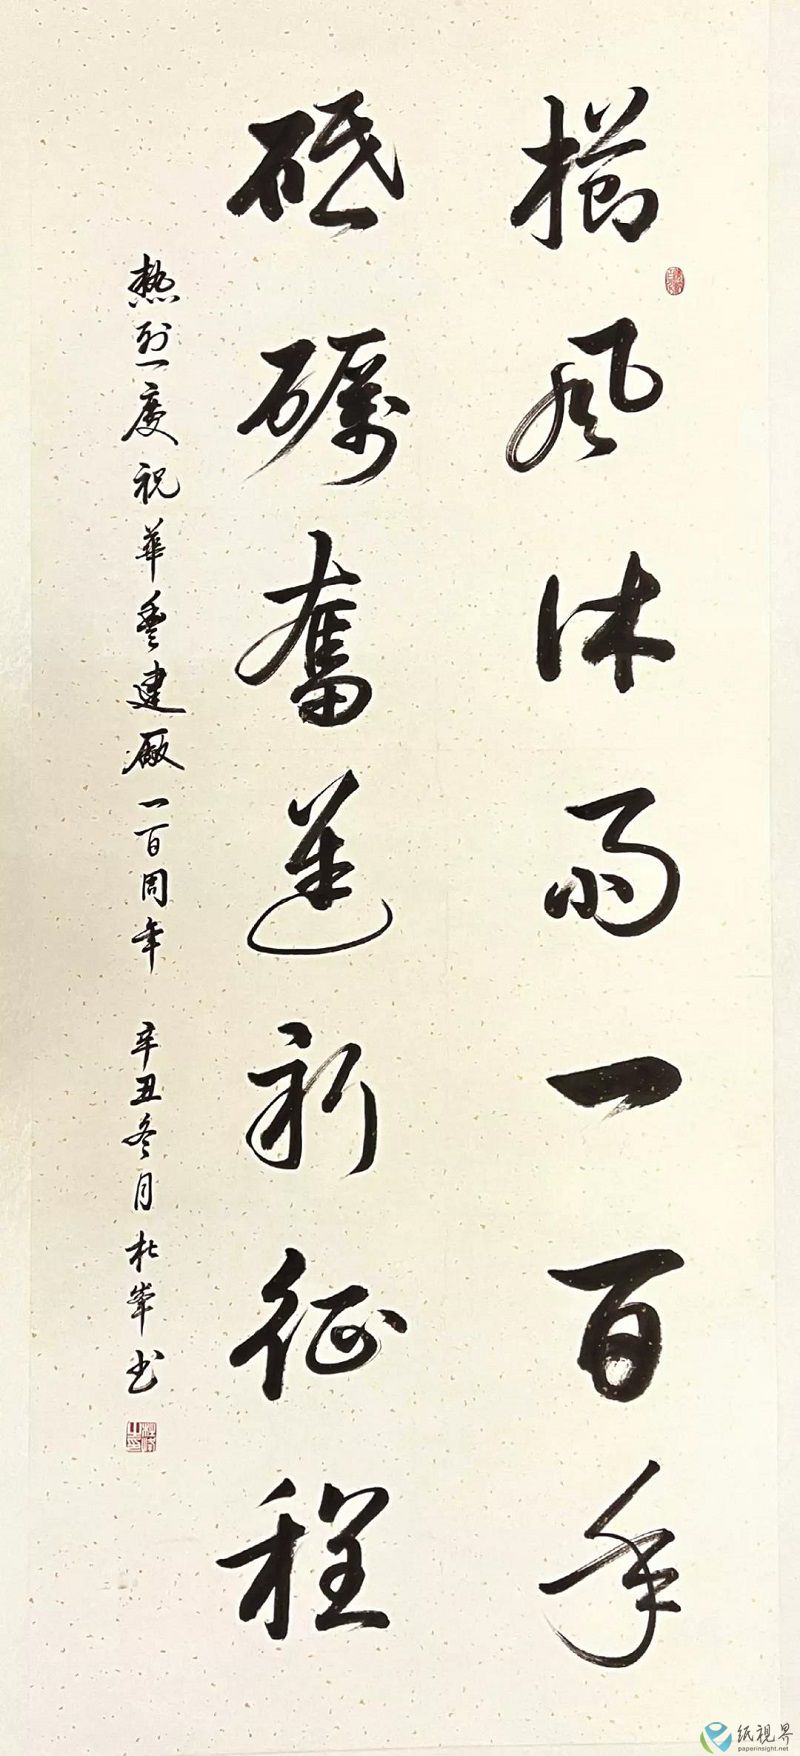 櫛風沐雨一百年
砥礪奮進新征程
熱烈慶祝華豐建廠一百周年 辛丑冬月杜峯书
纸视界
paperinsight.net